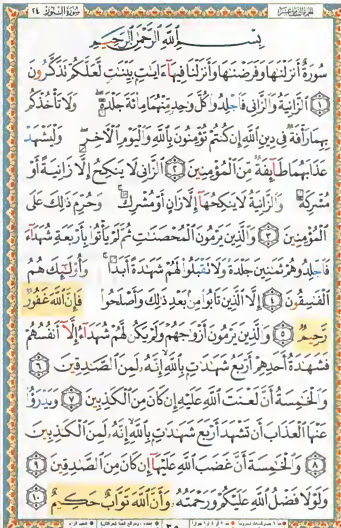 سورة النور ٢٤
بسم الله الرحمن الرحيم
سُورَةٌ أَنزَلْنَاهَا وَفَرَضْنَاهَا وَأَنزَلْنَا فِيهَا آيَاتٍ بَيِّنَاتٍ لَّعَلَّكُمْ تَذَكَّرُونَ
١ الزَّانِيَةُ وَالزَّانِي فَاجْلِدُوا كُلَّ وَاحِدٍ مِّنْهُمَا مِائَةَ جَلْدَةٍ وَلَا تَأْخُذْكُم
بِهِمَا رَأْفَةٌ فِي دِينِ اللَّهِ إِن كُنتُمْ تُؤْمِنُونَ بِاللَّهِ وَالْيَوْمِ الْآخِرِ وَلْيَشْهَدْ
عَذَابَهُمَا طَائِفَةٌ مِّنَ الْمُؤْمِنِينَ ٢ الزَّانِي لَا يَنكِحُ إِلَّا زَانِيَةً أَوْ
مُشْرِكَةً وَالزَّانِيَةُ لَا يَنكِحُهَا إِلَّا زَانٍ أَوْ مُشْرِكٌ وَحُرِّمَ ذَٰلِكَ عَلَى
الْمُؤْمِنِينَ ٣ وَالَّذِينَ يَرْمُونَ الْمُحْصَنَاتِ ثُمَّ لَمْ يَأْتُوا بِأَرْبَعَةِ شُهَدَاءَ
فَاجْلِدُوهُمْ ثَمَانِينَ جَلْدَةً وَلَا تَقْبَلُوا لَهُمْ شَهَادَةً أَبَدًا وَأُولَٰئِكَ هُمُ
الْفَاسِقُونَ ٤ إِلَّا الَّذِينَ تَابُوا مِن بَعْدِ ذَٰلِكَ وَأَصْلَحُوا فَإِنَّ اللَّهَ غَفُورٌ
رَّحِيمٌ ٥ وَالَّذِينَ يَرْمُونَ أَزْوَاجَهُمْ وَلَمْ يَكُن لَّهُمْ شُهَدَاءُ إِلَّا أَنفُسُهُمْ
فَشَهَادَةُ أَحَدِهِمْ أَرْبَعُ شَهَادَاتٍ بِاللَّهِ إِنَّهُ لَمِنَ الصَّادِقِينَ ٦
وَالْخَامِسَةُ أَنَّ لَعْنَتَ اللَّهِ عَلَيْهِ إِن كَانَ مِنَ الْكَاذِبِينَ ٧ وَيَدْرَؤُا
عَنْهَا الْعَذَابَ أَن تَشْهَدَ أَرْبَعَ شَهَادَاتٍ بِاللَّهِ إِنَّهُ لَمِنَ الْكَاذِبِينَ
٨ وَالْخَامِسَةَ أَنَّ غَضَبَ اللَّهِ عَلَيْهَا إِن كَانَ مِنَ الصَّادِقِينَ ٩
وَلَوْلَا فَضْلُ اللَّهِ عَلَيْكُمْ وَرَحْمَتُهُ وَأَنَّ اللَّهَ تَوَّابٌ حَكِيمٌ ١٠